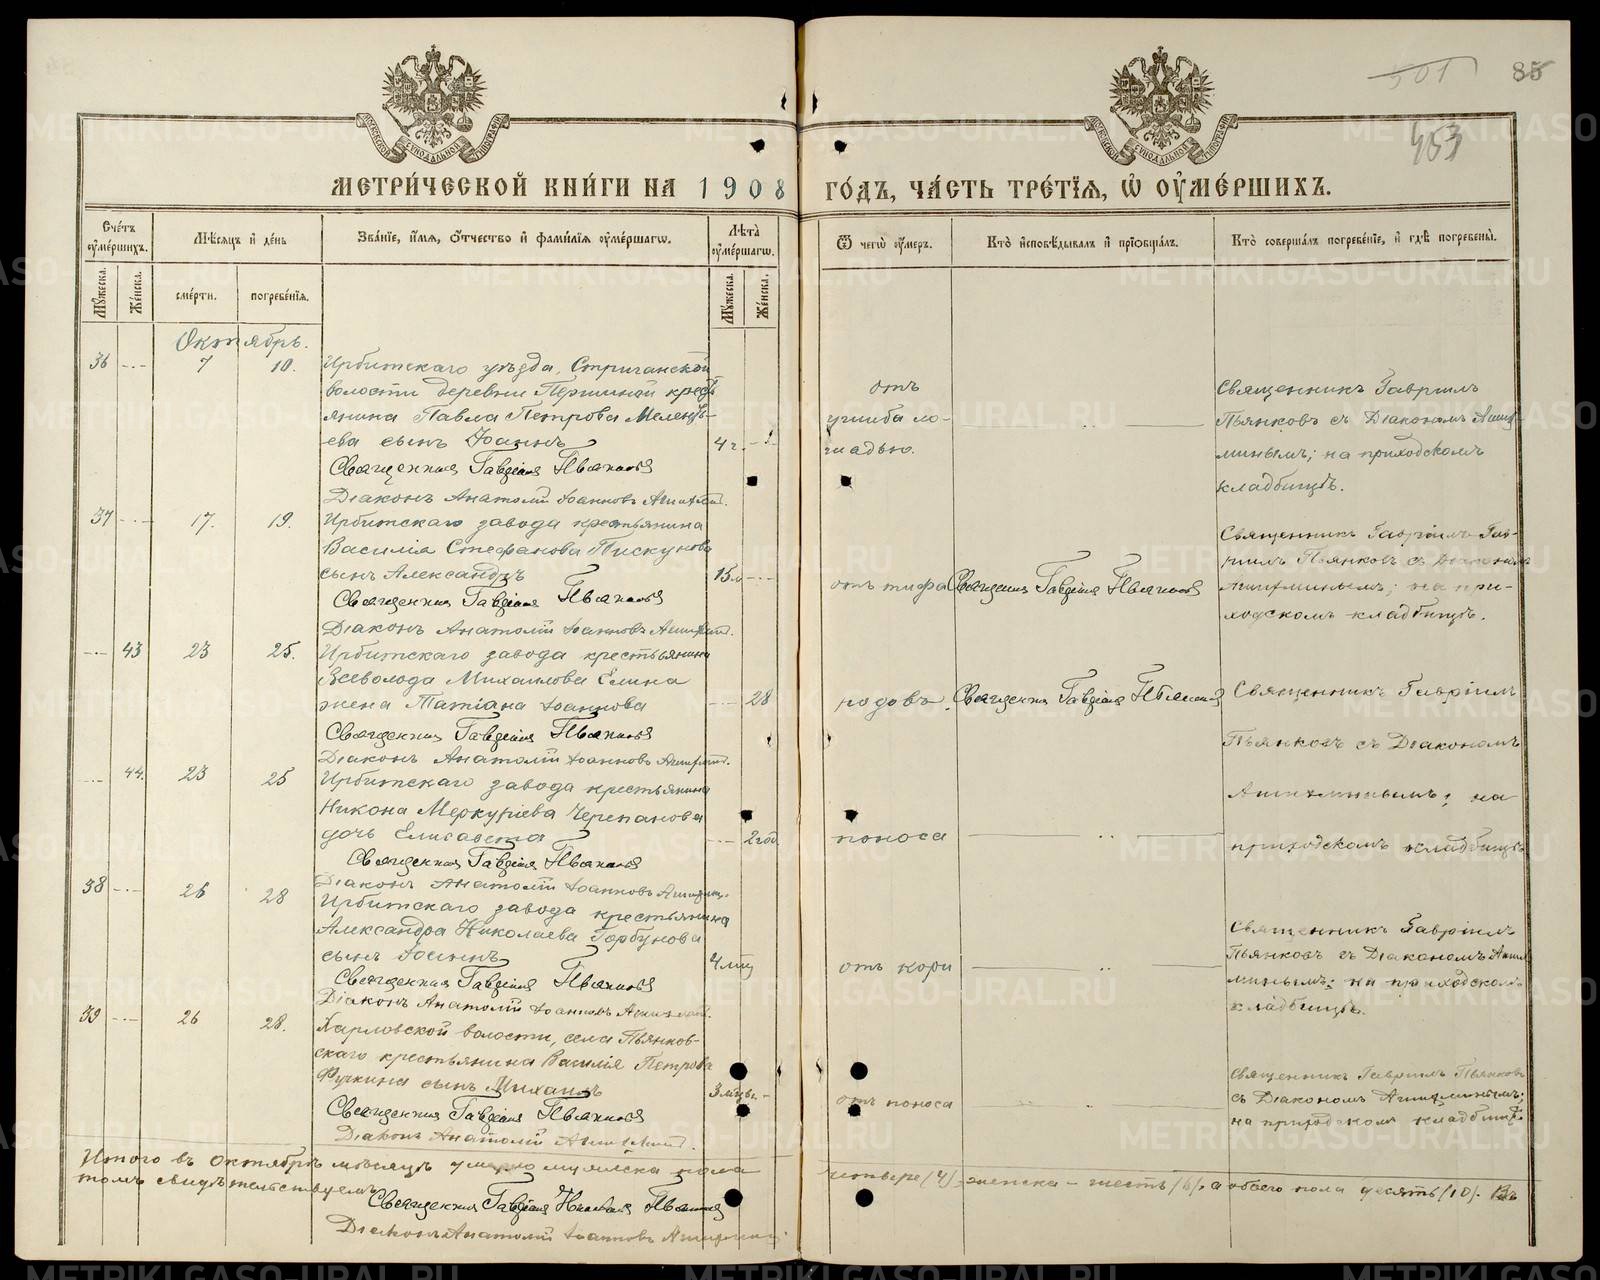 501 85
453
МЕТРИ́ЧЕСКОЙ КНИ́ГИ НА 1908 ГО́ДЪ, ЧА́СТЬ ТРЕ́ТІЯ, Ѡ ОУМЕ́РШИХЪ.
Счетъ оумершихъ.
Мѣсяцъ и день
Званіе, имя, отчество и фамилія оумершагѡ.
Лѣта оумершагѡ.
Ѿ чегѡ оумеръ.
Кто исповѣдывалъ и пріобщалъ.
Кто совершалъ погребеніе, и гдѣ погребены.
Мужеска.
Женска.
смерти.
погребенія.
Мужеска.
Женска.
Октябрь.
36 7 10.
Ирбитскаго уѣзда, Стриганской
волости деревни Першиной крестъ
янина Павла Петрова Мелентъ-
ева сынъ Іоаннъ
4 г.
отъ
ушиба ло-
шадью.
Священникъ Гавріилъ
Пьянковъ съ Діакономъ
миныmъ; на приходскомъ
кладбищѣ.
Священникъ Гавріилъ Пьянковъ
Діаконъ Анатолій Іоанновъ
37 17. 19.
Ирбитскаго завода крестьянина
Василія Стефанова Пискунова
сынъ Александръ
15
отъ тифа
Священникъ Гавріилъ Пьянковъ
Священникъ Гавріилъ Гав-
ріилъ Пьянковъ съ Діакономъ
на при-
ходскомъ кладбищѣ.
Священникъ Гавріилъ Пьянковъ
Діаконъ Анатолій Іоанновъ
43 23 25.
Ирбитскаго завода крестьянина
Всеволода Михаилова Елина
жена Татіана Іоаннова
28
родовъ.
Священникъ Гавріилъ Пьянковъ
Священникъ Гавріилъ
Пьянковъ съ Діакономъ
на
приходскомъ кладбищѣ
Священникъ Гавріилъ Пьянковъ
Діаконъ Анатолій Іоанновъ
44. 23 25
Ирбитскаго завода крестьянина
Никона Меркуріева Черепанова
дочь Елисавета
2 год.
поноса
Священникъ Гавріилъ Пьянковъ
Діаконъ Анатолій Іоанновъ
38 26 28
Ирбитскаго завода крестьянина
Александра Николаева Горбунова
сынъ
4 мцъ
отъ кори
Священникъ Гавріилъ
Пьянковъ съ Діакономъ
миныmъ; на приходскомъ
кладбищѣ.
Священникъ Гавріилъ Пьянковъ
Діаконъ Анатолій Іоанновъ
39 26 28.
Харловской волости, села Пьянков-
скаго крестьянина Василія Петрова
Фучкина сынъ Михаилъ
3 мцъ
отъ поноса
Священникъ Гавріилъ Пьянковъ
съ Діакономъ
на приходскомъ кладбищѣ.
Священникъ Гавріилъ Пьянковъ
Діаконъ Анатолій
Итого въ Октябрѣ мѣсяцѣ умерло мужеска пола четыре /4/, женска – шесть /6/, а обоего пола десять /10/. Въ
томъ свидѣтельствуемъ
Священникъ Гавріилъ Пьянковъ
Діаконъ Анатолій Іоанновъ
METRIKI.GASO-URAL.RU